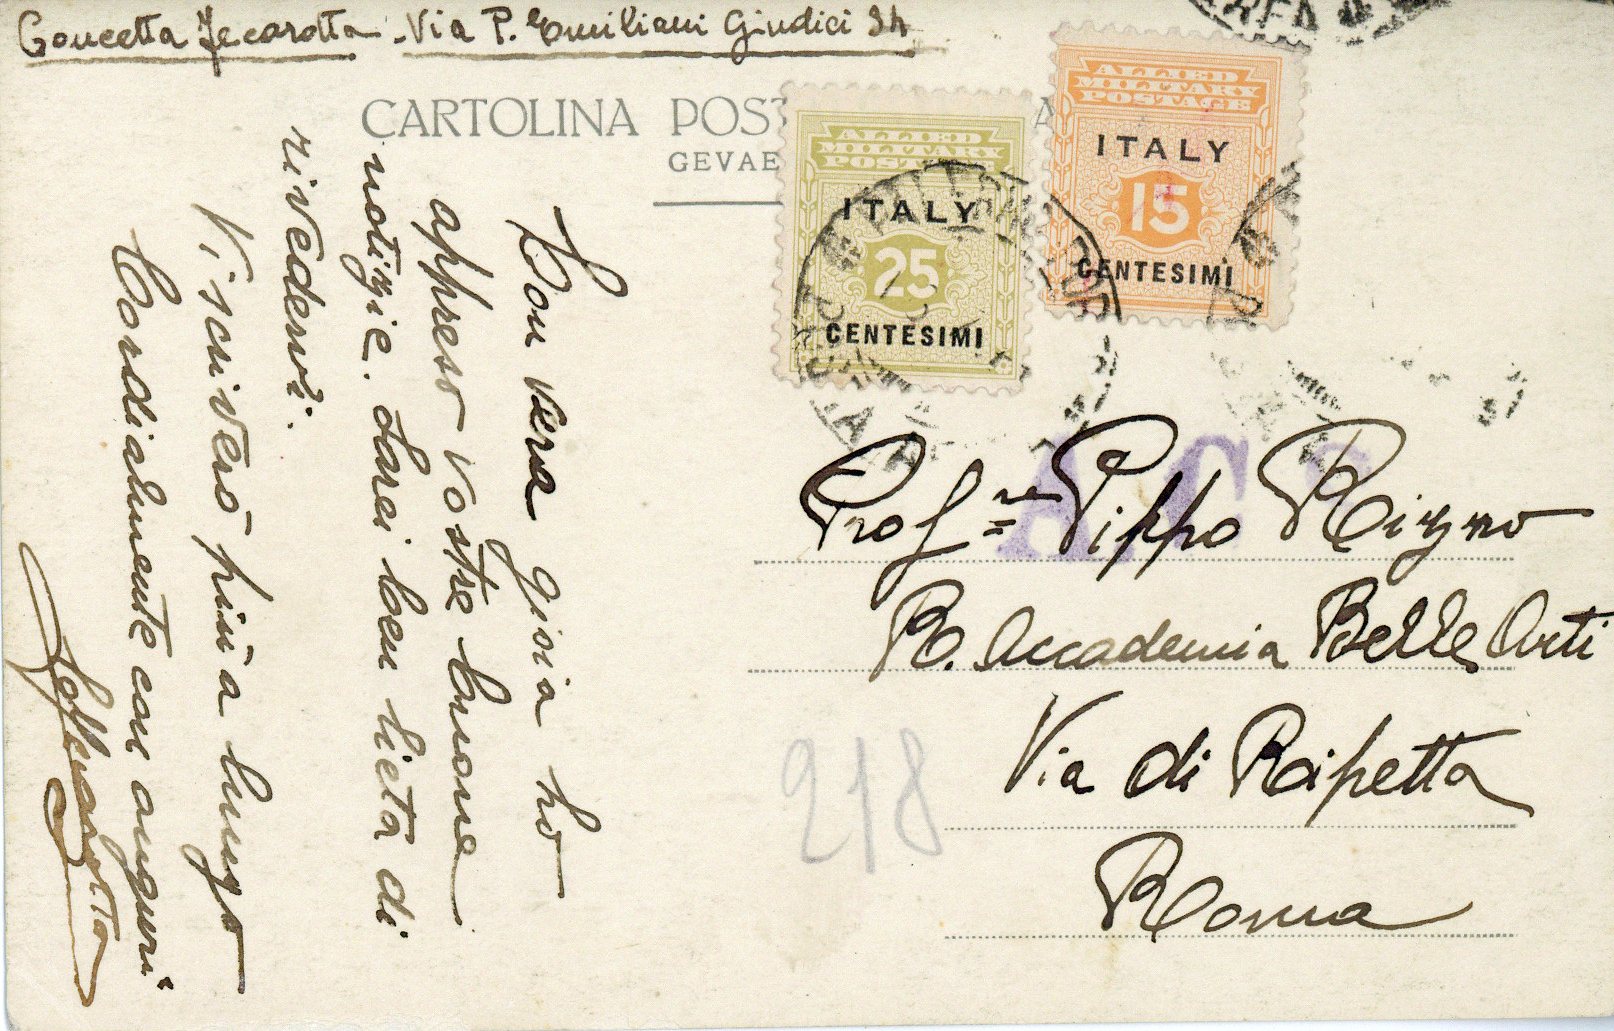 Concetta Tecarotta - Via P. Emiliani Giudici 34
CARTOLINA POST
GEVAE
ALLIED
MILITARY
POSTAGE
ITALY
25
CENTESIMI
ALLIED
MILITARY
POSTAGE
ITALY
15
CENTESIMI
Con vera gioia ho
appreso vostre buone
notizie. Sarei ben lieta di
rivedervi.
Vi scriverò più a lungo
Cordialmente con auguri
A.C.
Prof.re Pippo Rizzo
R. Accademia Belle Arti
Via di Ripetta
Roma
918